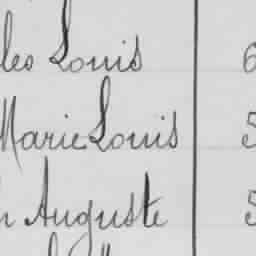 les Louis 6
Marie Louis 5
n Auguste 5